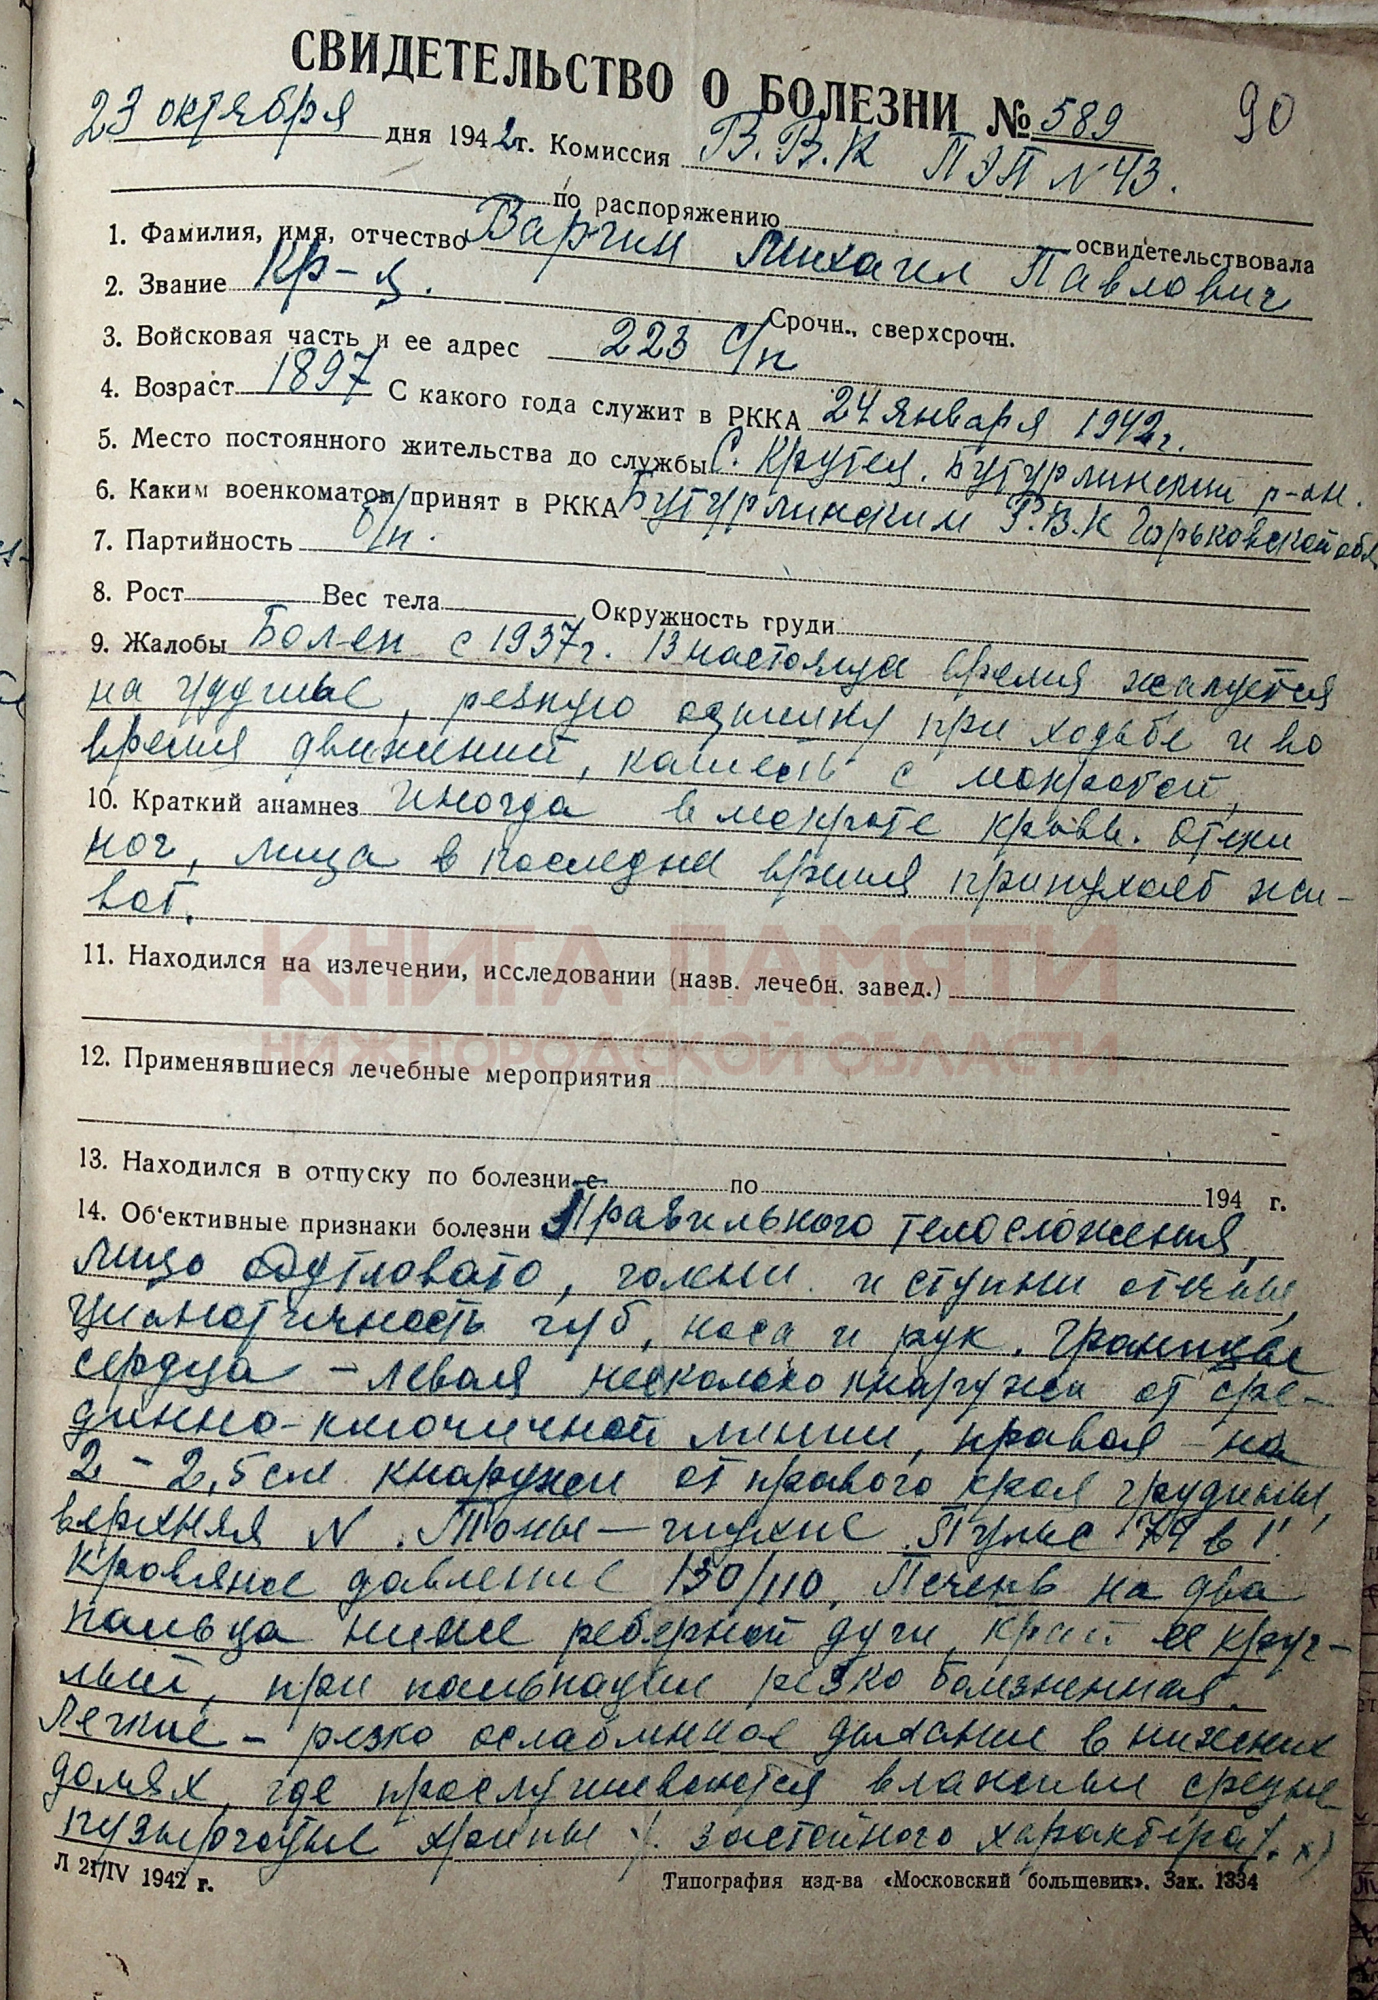 СВИДЕТЕЛЬСТВО О БОЛЕЗНИ № 589
90
23 октября дня 1942 г. Комиссия В.В.К ПЭП N 43.
по распоряжению освидетельствовала
1. Фамилия, имя, отчество Варгин Михаил Павлович
2. Звание Кр-ц. Срочн., сверхсрочн.
3. Войсковая часть и ее адрес 223 с/п
4. Возраст 1897 С какого года служит в РККА 24 января 1942 г.
5. Место постоянного жительства до службы С. Крутея. Бутурлинский р-он.
6. Каким военкоматом принят в РККА Бутурлинским Р.В.К Горьковской обл
7. Партийность б/п.
8. Рост Вес тела Окружность груди
9. Жалобы Болен с 1937 г. В настояще время жалуется
на удушье, резкую одышку при ходьбе и во
время движений, кашель с мокротой,
10. Краткий анамнез иногда в мокроте кровь. Отеки
ног, лица в последне время припухает жи-
вот.
КНИГА ПАМЯТИ
НИЖЕГОРОДСКОЙ ОБЛАСТИ
11. Находился на излечении, исследовании (назв. лечебн. завед.)
12. Применявшиеся лечебные мероприятия
13. Находился в отпуску по болезни с по 194 г.
14. Об'ективные признаки болезни Правильного телосложения,
лицо одутловато, голени и ступни отечны,
цианотичность губ, носа и рук. Границы
сердца - левая несколько кнаружи от сре-
динно-ключичной линии, правая - на
2 - 2,5 см кнаружи от правого края грудины,
верхняя N. Тоны - глухие. Пульс 74 в 1'
Кровяное давление 130/110. Печень на два
пальца ниже реберной дуги, край ее круг-
лый, при пальпации резко болезненная.
Легкие - резко ослабленное дыхание в нижних
долях, где прослушиваются влажные средне
пузырчатые хрипы /. застойного характера/. х)
Л 21/IV 1942 г. Типография изд-ва «Московский большевик». Зак. 1334